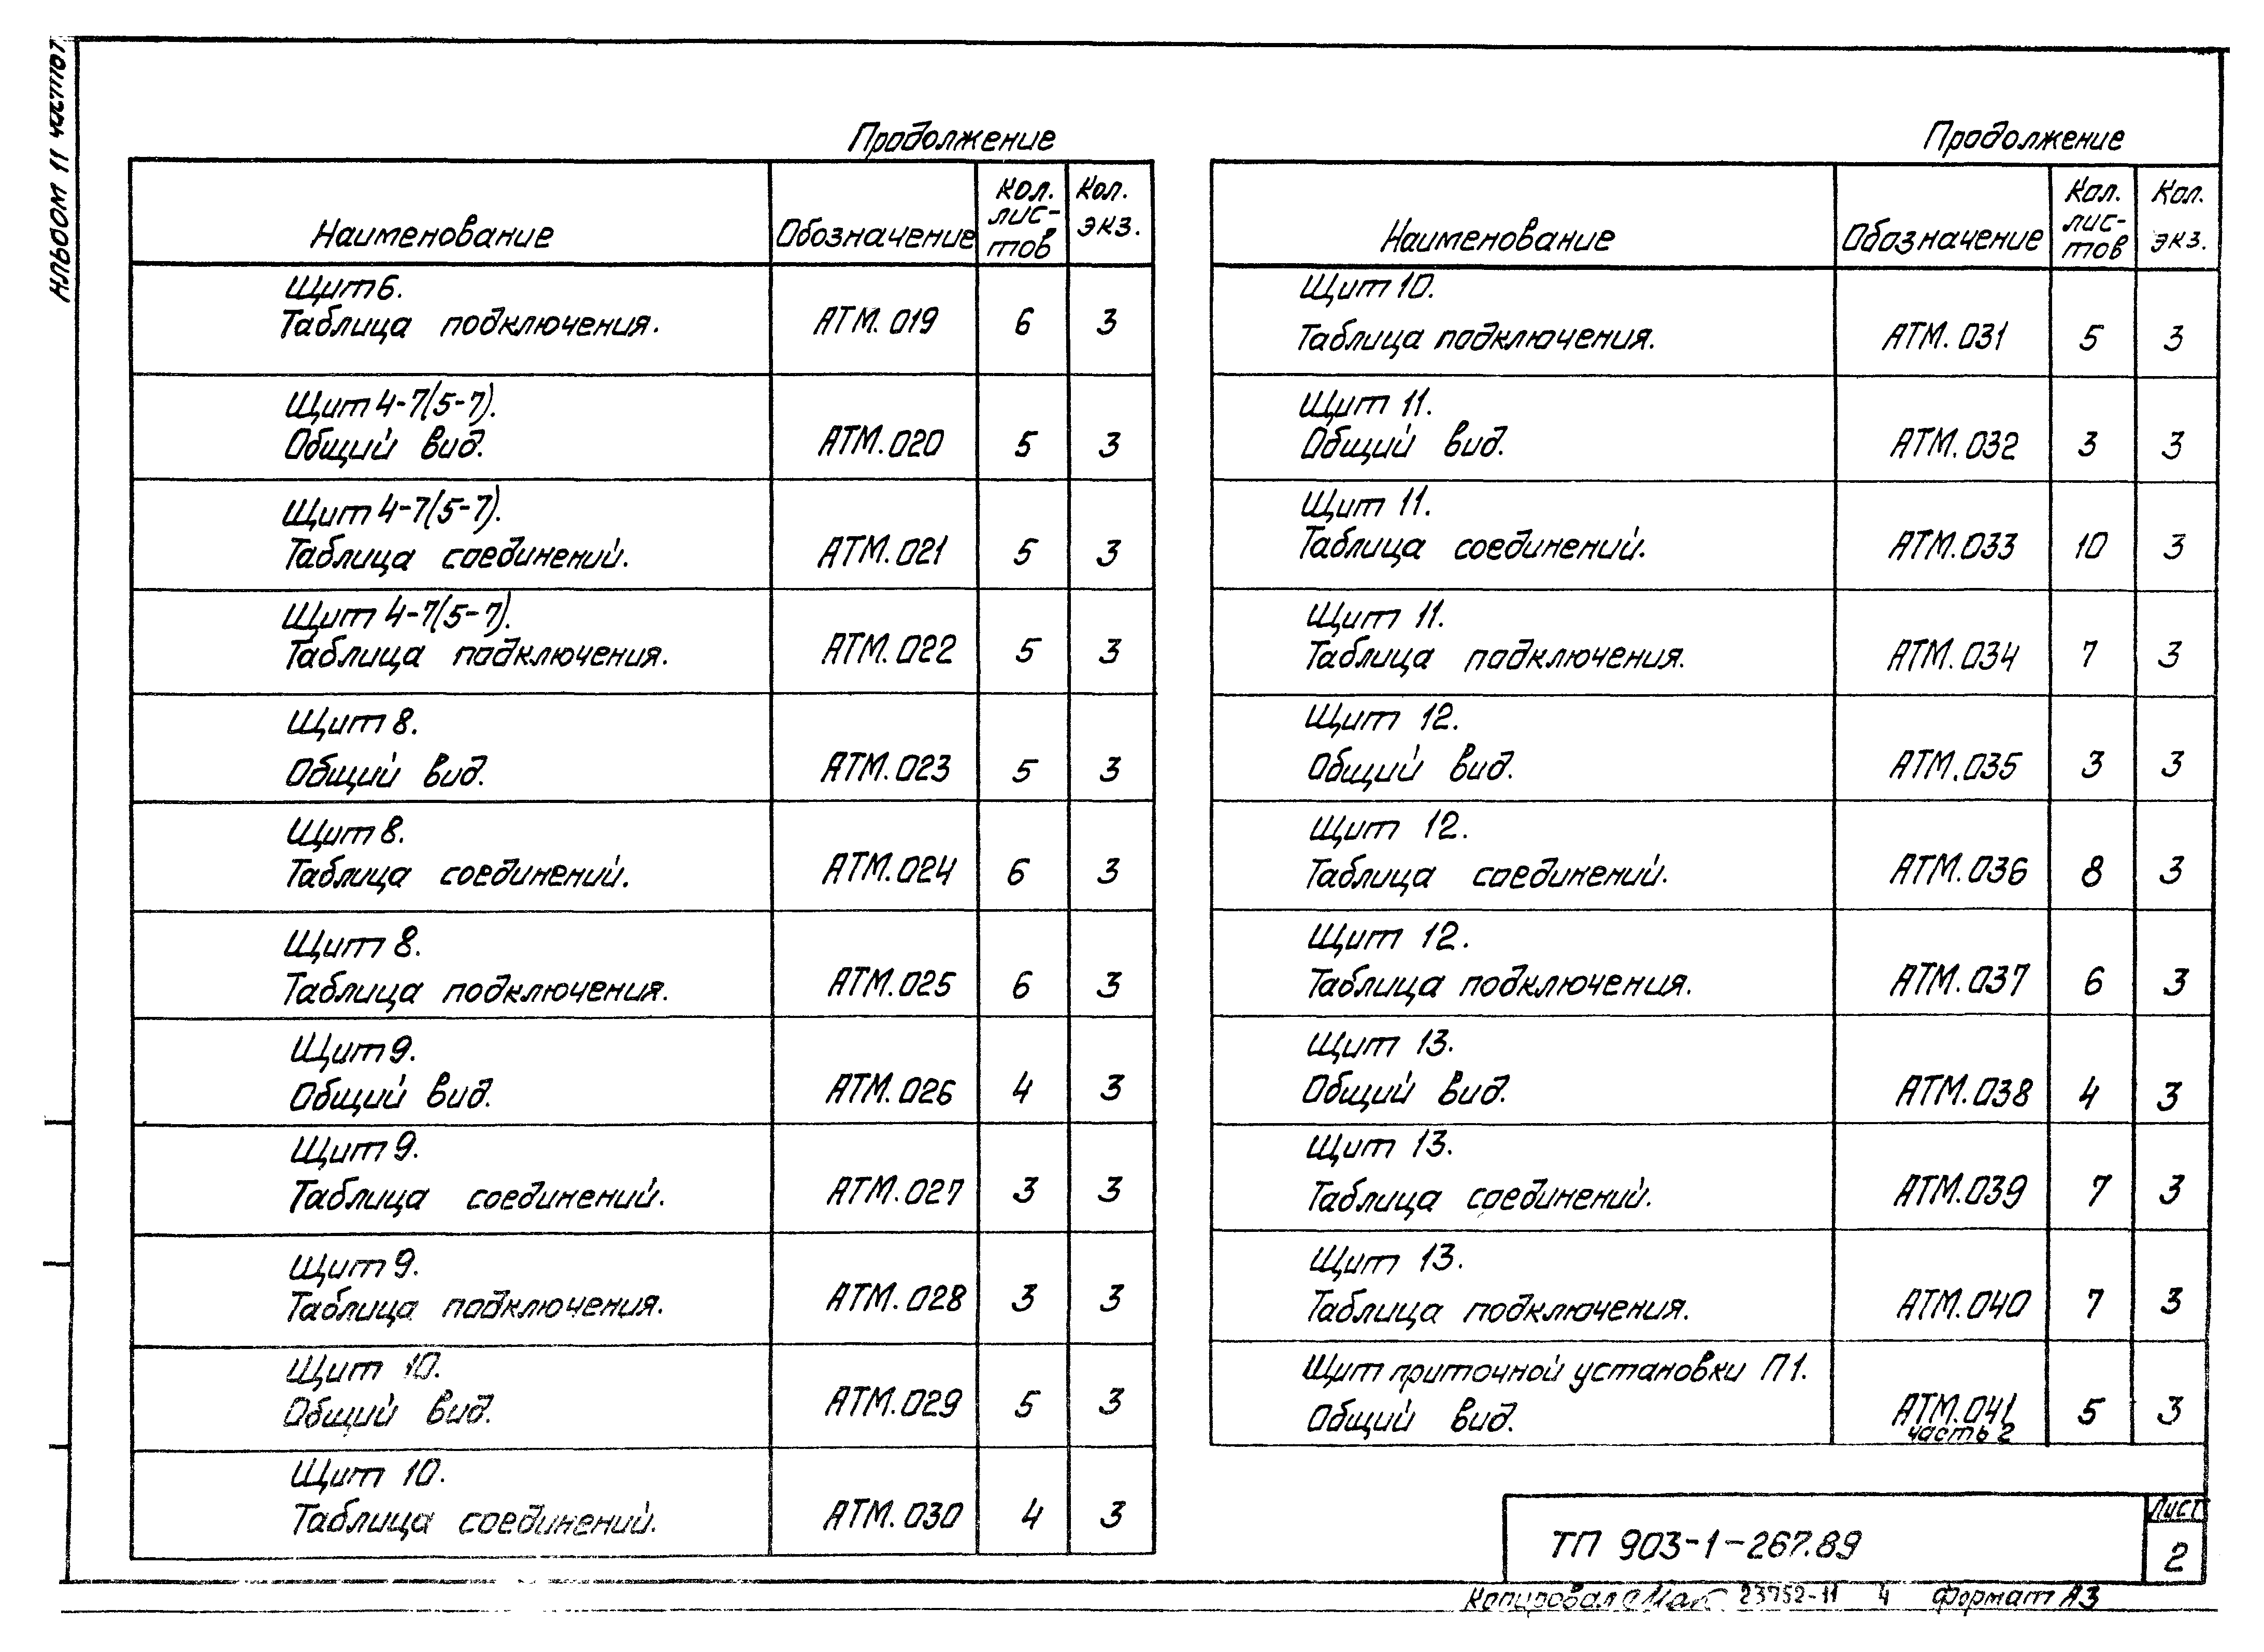 Альбом 11 часть 1
Продолжение
Наименование Обозначение Кол. лис-тов Кол. экз.
Щит 6.
Таблица подключения. АТМ.019 6 3
Щит 4-7(5-7).
Общий вид. АТМ.020 5 3
Щит 4-7(5-7).
Таблица соединений. АТМ.021 5 3
Щит 4-7(5-7).
Таблица подключения. АТМ.022 5 3
Щит 8.
Общий вид. АТМ.023 5 3
Щит 8.
Таблица соединений. АТМ.024 6 3
Щит 8.
Таблица подключения. АТМ.025 6 3
Щит 9.
Общий вид. АТМ.026 4 3
Щит 9.
Таблица соединений. АТМ.027 3 3
Щит 9.
Таблица подключения. АТМ.028 3 3
Щит 10.
Общий вид. АТМ.029 5 3
Щит 10.
Таблица соединений. АТМ.030 4 3
Продолжение
Наименование Обозначение Кол. лис-тов Кол. экз.
Щит 10.
Таблица подключения. АТМ.031 5 3
Щит 11.
Общий вид. АТМ.032 3 3
Щит 11.
Таблица соединений. АТМ.033 10 3
Щит 11.
Таблица подключения. АТМ.034 7 3
Щит 12.
Общий вид. АТМ.035 3 3
Щит 12.
Таблица соединений. АТМ.036 8 3
Щит 12.
Таблица подключения. АТМ.037 6 3
Щит 13.
Общий вид. АТМ.038 4 3
Щит 13.
Таблица соединений. АТМ.039 7 3
Щит 13.
Таблица подключения. АТМ.040 7 3
Щит приточной установки П1.
Общий вид. АТМ.041 5 3
часть 2
ТП 903-1-267.89
Лист
2
Копировал 23752-11 4 Формат А3